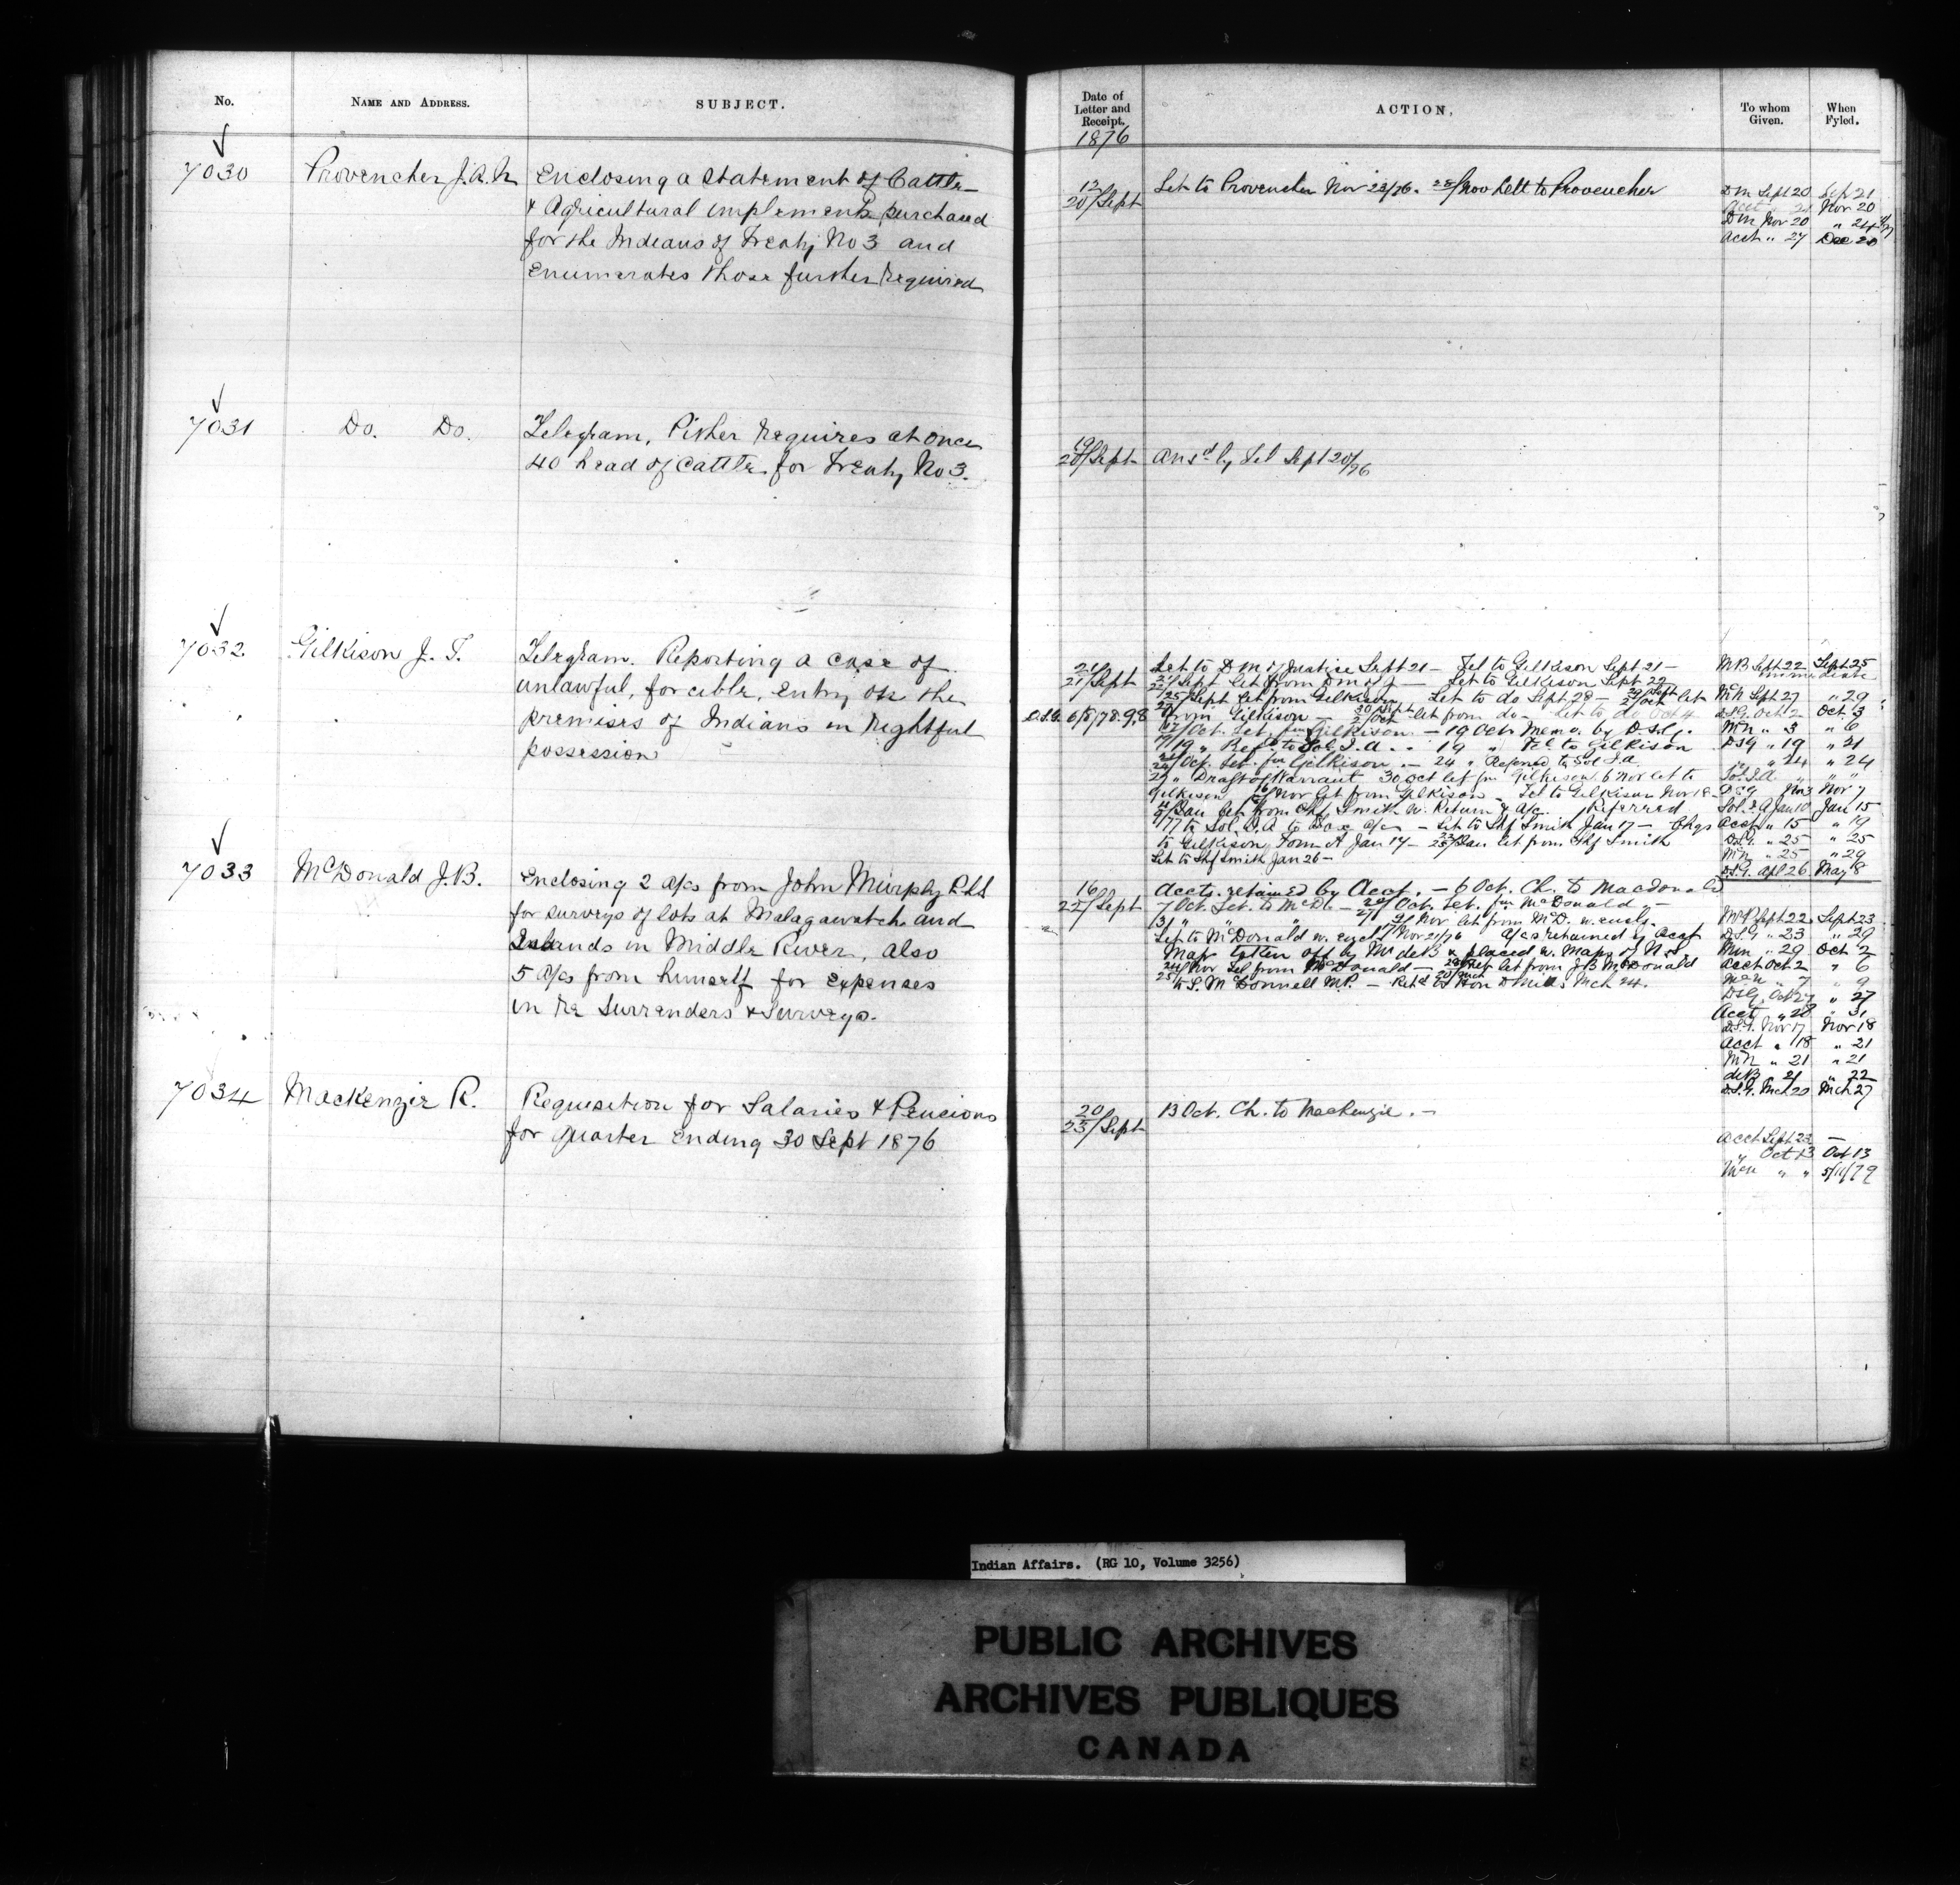 No.
NAME AND ADDRESS.
SUBJECT.
7030
Provencher J.A.N.
Enclosing a Statement of Cattle
& Agricultural implements purchased
for the Indians of Treaty No 3 and
Enumerates those further required
7031
Do. Do.
Telegram, Pither requires at once
40 head of Cattle for Treaty No 3.
7032
Gilkison J. T.
Telegram. Reporting a case of
unlawful, forcible, entry on the
premises of Indians in rightful
possession
7033
McDonald J.B.
Enclosing 2 a/cs from John Murphy P.L.S
for surveys of lots at Malagawatch and
Islands in Middle River, also
5 a/cs from himself for expenses
in re Surrenders & Surveys.
7034
Mackenzie R.
Requisition for Salaries & Pensions
for quarter ending 30 Sept 1876
Date of
Letter and
Receipt.
1876
ACTION,
To whom
Given.
When
Fyled.
12
20/Sept
Let to Provencher Nov 23/76. 28/Nov Lett to Provencher
DM Sept 20 Sept 21
Nov 20
DM Nov 20 " 24
Acct " 27 Dec 20
19
20/Sept
Ansd by Tel Sept 20/76
21
21/Sept
Let to D M of Justice Sept 21 — Tel to Gilkison Sept 21 —
Sept Let from D M of J — Let to Gilkison Sept 22
25/Sept Let from Gilkison Let to do Sept 28 — 2/Oct let
from Gilkison — 2/Oct let from do — Let to do Oct 4
/Oct. Let. fm Gilkison. — 19 Oct. Memo. by D.S.G.
/19 " Ref. to Sol I.A. — 19 " Tel to Gilkison
/Oct. Let. fm Gilkison. — 24 " Referred to Sol I.A.
" Draft of Warrant 30 Oct let fm Gilkison 6 Nov let to
Gilkison 16/Nov Let from Gilkison — Tel to Gilkison Nov 18 —
/Jan Let from Shf Smith w. Return & a/c. Referred
/77 to Sol. I.A to Tax a/c — Let to Shf Smith Jan 17 — Chqs
to Gilkison Form A Jan 17 — 25/Jan let from Shf Smith
Let to Shf Smith Jan 26 —
MB Sept 22 Sept 25
immediate
McN Sept 27 " 29
D.S.G. Oct 2 Oct. 3
McN " 3 " 6
DSG " 19 " 21
" " 24 " 24
Sol. I.A. " " "
DSG Nov 3 Nov 7
Sol. I A Jan 10 Jan 15
Acct " 15 " 19
D.S.G. " 25 " 25
McN " 25 " 29
D.S.G. Apl 26 May 8
16
22/Sept
Accts. retained by Acct. — 6 Oct. Ch. to Macdonald
7 Oct. Let. to McD — /Oct. Let. fm McDonald —
/Nov let from McD. w. encls.
Let to McDonald w. encl Nov 21/76 a/cs retained by Acct
Map taken off by Mr deB & placed w. Maps of N.S.
/Nov Tel from McDonald — let from J B McDonald
to S. McDonnell M.P. — Retd to Hon D Mills Mch 24.
Sept 22 Sept 23
D.S.G " 23 " 29
Min " 29 Oct 2
Acct Oct 2 " 6
McN " 7 " 9
DSG Oct 27 " 27
Acct " 28 " 31
D.S.G. Nov 17 Nov 18
Acct " 18 " 21
McN " 21 " 21
deB " 21 " 22
D.S.G. Mch 20 Mch 27
20
23/Sept
13 Oct. Ch. to Mackenzie. —
Acct Sept 23 —
" Oct 13 Oct 13
" " 5/11/79
Indian Affairs. (RG 10, Volume 3256)
PUBLIC ARCHIVES
ARCHIVES PUBLIQUES
CANADA